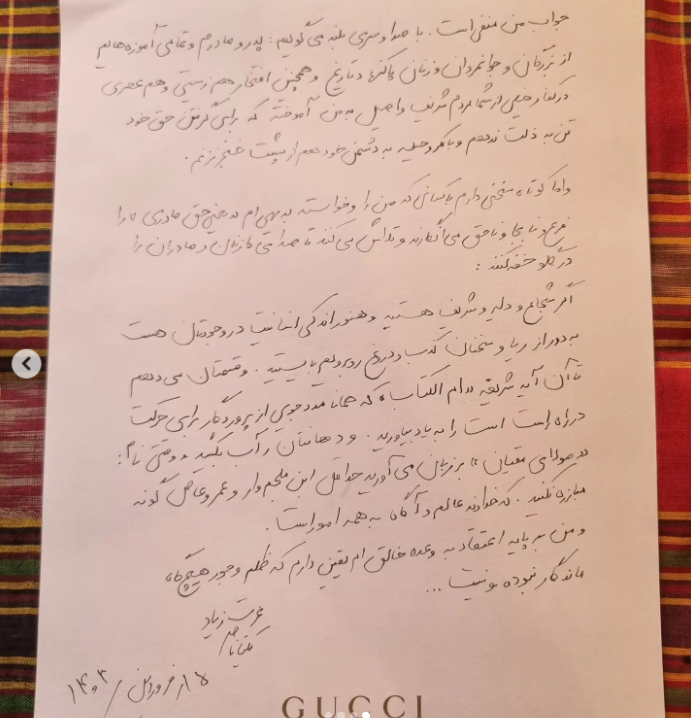 جواب من منفی است. با صدا و سری بلند می گویم: پدر و مادرم و تمامی آموزه هایم
از بزرگان و جوانمردان و زنان تاریخ و همچنین افتخار هم زیستی و هم عصری
در کنار خیلی از شما مردم شریف و اصیل به من آموخته که برای گرفتن حق خود
تن به ذلت ندهم و با مکر و حیله به دشمن خود هم از پشت خنجر نزنم.
و اما کوتاه سخنی دارم با کسانی که من را و خواسته بدیهی ام یعنی حق مادری ام را
نابجا و ناحق می انگارند و تلاش می کنند تا صدای زنان و مادران را
در گلو خفه کنند:
اگر شجاع و دلیر و شریف هستید و هنوز اندکی انسانیت در وجودتان هست
به دور از ریا و سخنان کذب و دروغ روبرویم بایستید. و قسمتان می دهم
تا آن آیه شریفه ام الکتاب که همانا مددجویی از پروردگار برای حرکت
در راه راست است را به یاد بیاورید. و دهانتان را آب بکشید و وقتی نام:
مولای متقیان بر زبان می آورید حداقل ابن ملجم وار و عمروعاص گونه
مبارزه نکنید. که خداوند عالم و آگاه به همه امور است.
و من بر پایه اعتقاد به وعده خالق ام یقین دارم که ظلم و جور هیچگاه
ماندگار نبوده و نیست...
عزت زیاد
۱۵ از فروردین / ۱۴۰۳
GUCCI